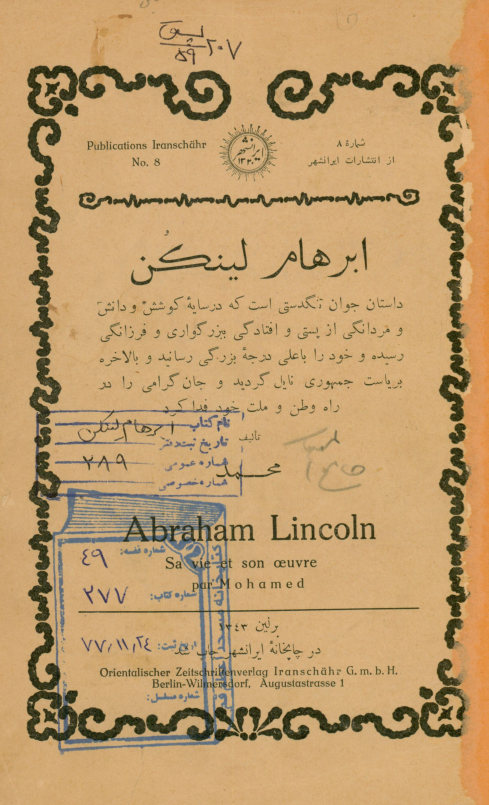 ۲۰۷
۵۹
Publications Iranschähr
No. 8
شمارهٔ ۸
از انتشارات ایرانشهر
ابرهام لینکُن
داستان جوان تنگدستی است که درسایهٔ کوشش و دانش
و مردانگی از پستی و افتادگی ببزرگواری و فرزانگی
رسیده و خود را باعلی درجهٔ بزرگی رسانید و بالاخره
بریاست جمهوری نایل گردید و جان گرامی را در
راه وطن و ملت خود فدا کرد
تألیف
محمد
نام کتاب ابرهام لینکن
تاریخ ثبت دفتر
شماره عمومی ۲۸۹
شماره خصوصی
Abraham Lincoln
Sa vie et son œuvre
par Mohamed
شماره قفسه: ۴۹
شماره کتاب: ۲۷۷
تاریخ ثبت: ۷۷٫۱۱٫۲۴
شماره مسلسل:
کتابخانه مسجد
برلین ۱۳۴۳
در چاپخانهٔ ایرانشهر چاپ شد
Orientalischer Zeitschriftenverlag Iranschähr G. m. b. H.
Berlin-Wilmersdorf, Augustastrasse 1